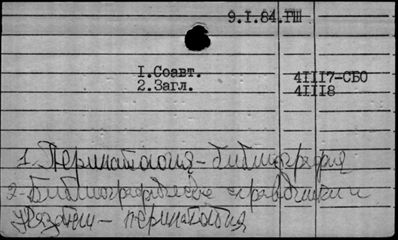 9.I.84.ГПІ
I.Соавт.
2.Загл.
4III7-СБО
4III8
1. Перинатология - библиография
2. Библиографические справочники и
указатели - перинатология